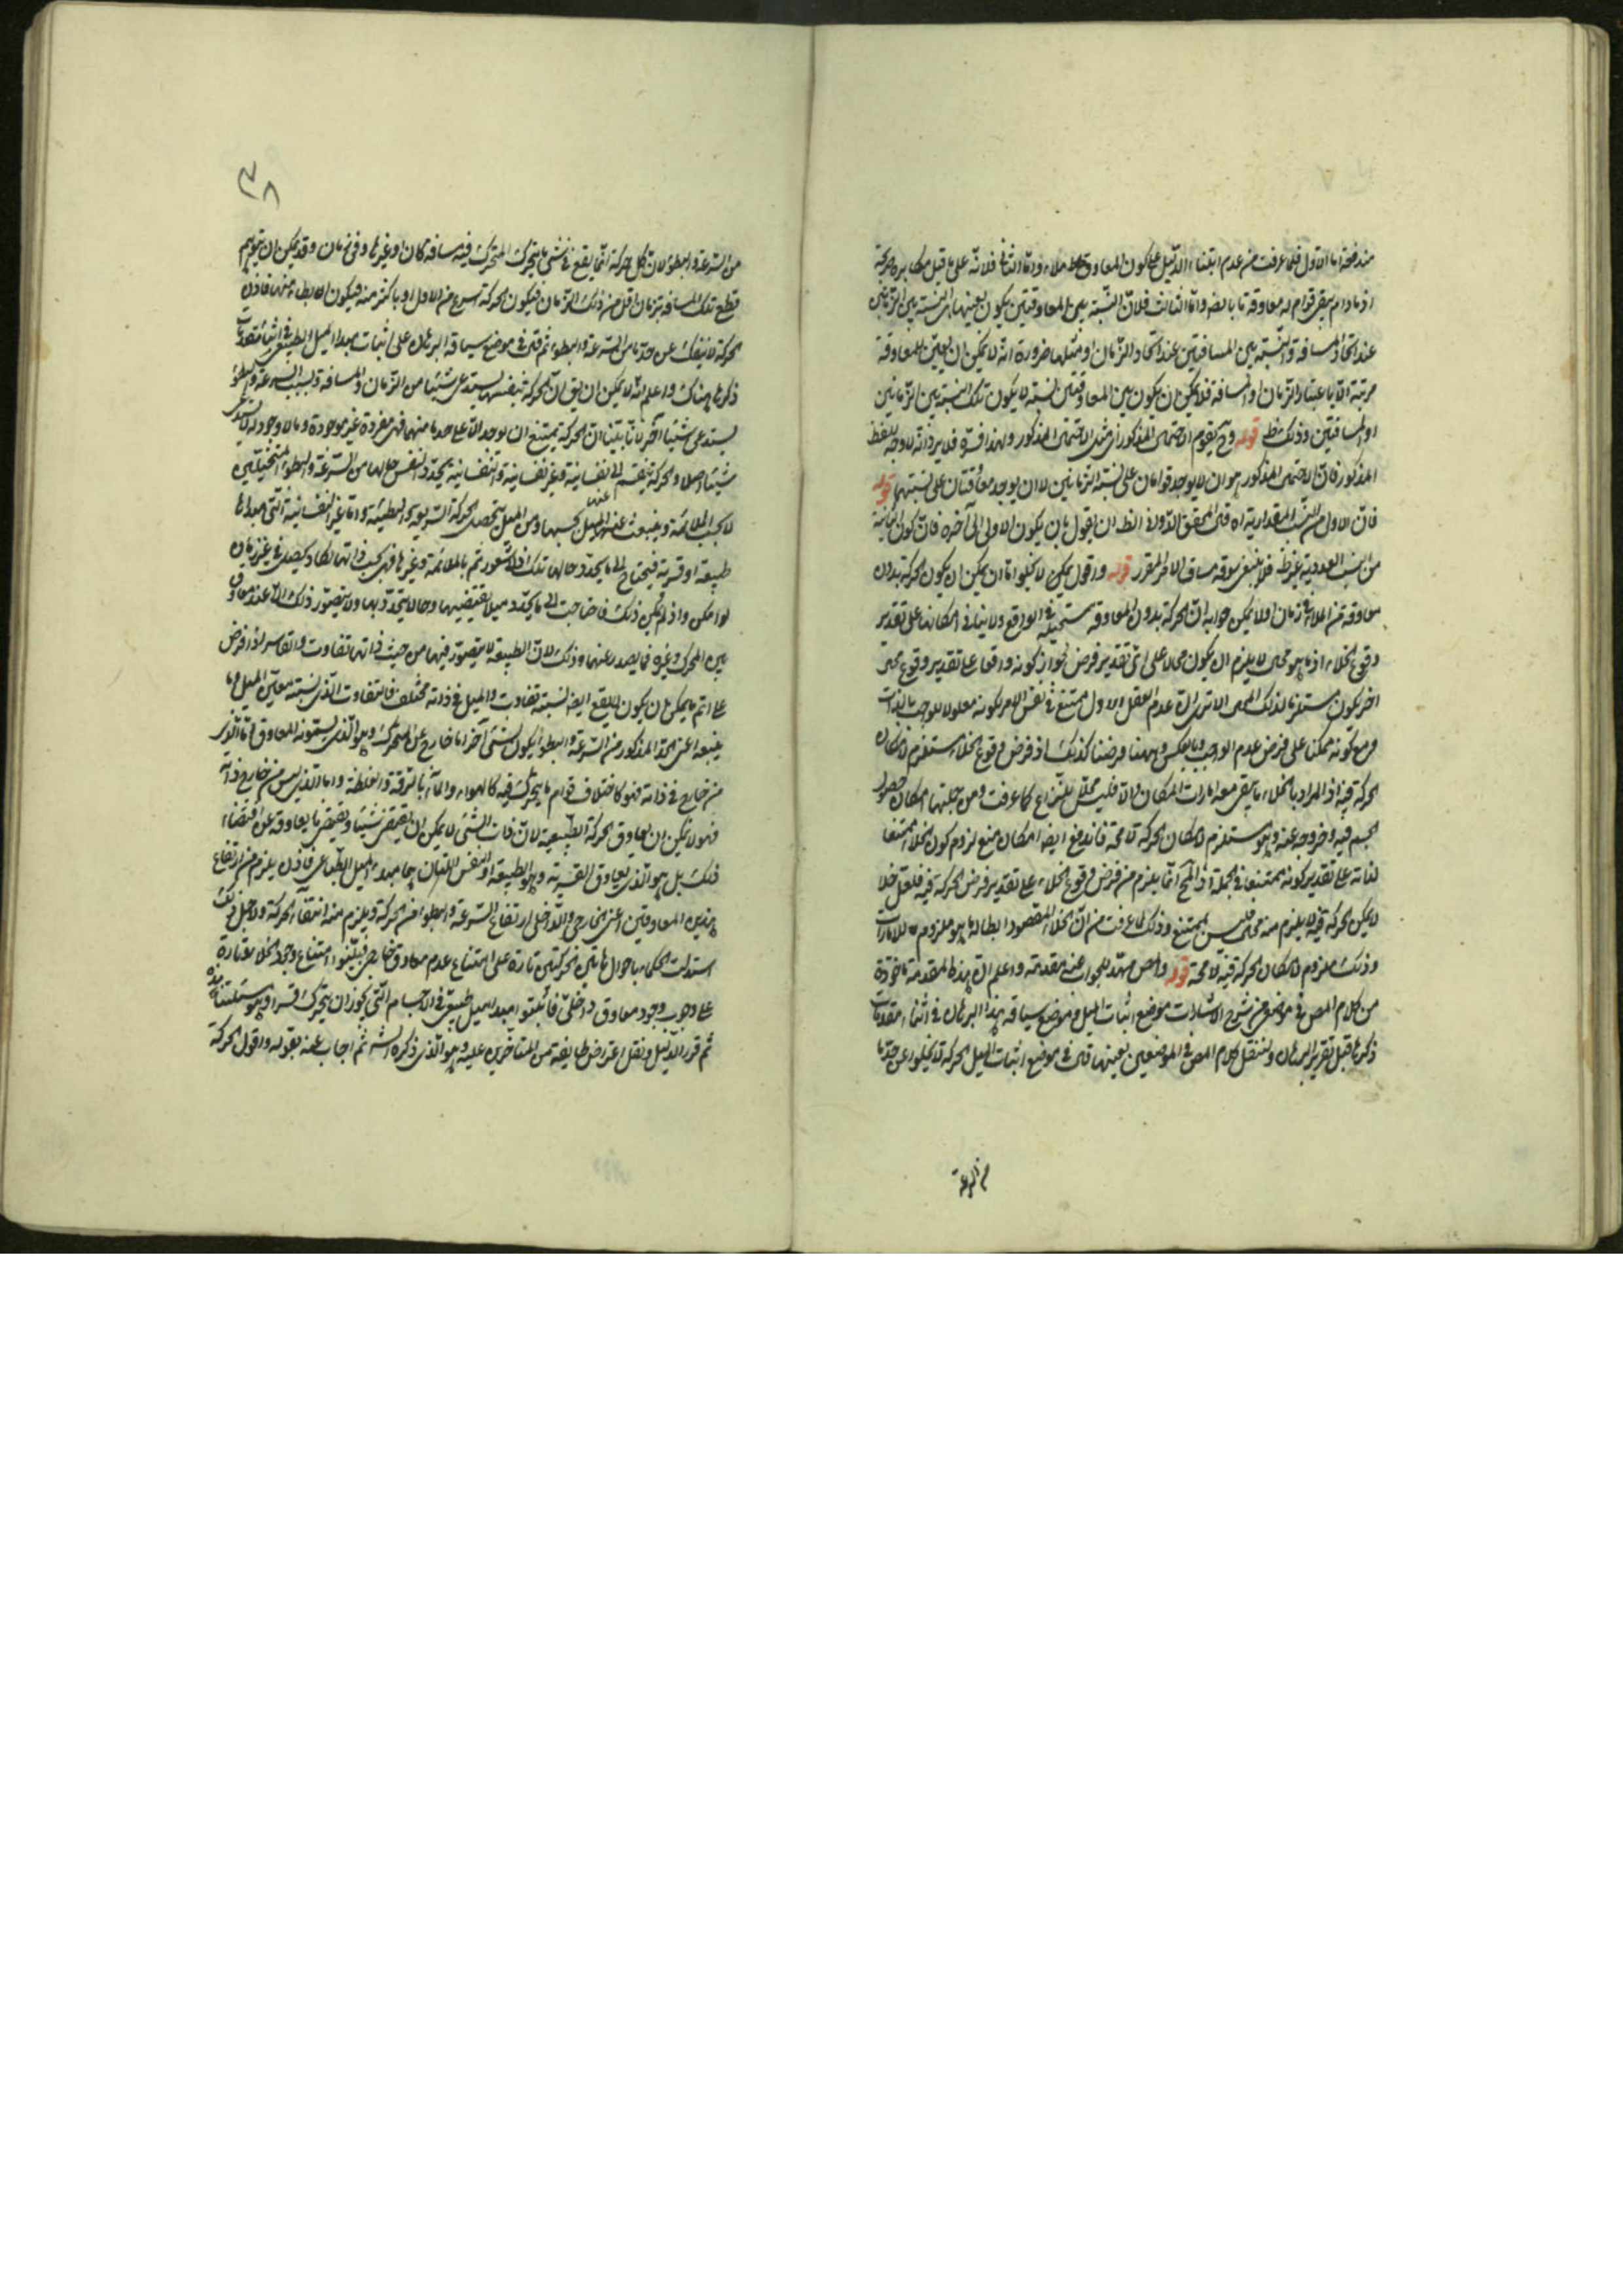 مندفعة اما الاول فلما عرفت من عدم ابتناء الدليل على كون المعاوق ملاء واما الثانى فلانه على ما قيل مكابرة صريحة
اذ ما دام يبقى قوام له معاوقة ما بالضرورة واما الثالث فلان النسبة بين المعاوقتين يكون بعينها النسبة بين الزمانين
عند اتحاد المسافة والنسبة بين المسافتين عند اتحاد الزمان او مثلها ضرورة انه لا يمكن ان يعين للمعاوقة
مرتبة الا باعتبار الزمان او المسافة فلا يمكن ان يكون بين المعاوقتين نسبة لا يكون تلك النسبة بين الزمانين
او المسافتين وذلك ظ قوله وح يقوم الاحتمال المذكور اى مثل الاحتمال المذكور
المذكور فان الاحتمال المذكور هو ان لا يوجد قوامان على نسبة الزمانين لا ان يوجد معاوقتان على نسبتهما قوله
فان الاول من النسب المقدارية اه قال المحقق الدوانى الظ ان يقول بان يكون الاولى الى آخره فان كون الثانية
من النسب العددية غير ظ فلا ينبغى سوقه مساق الامر المقرر قوله واقول يمكن لا يخلو اما ان يمكن ان يكون حركة بدون
معاوقة من الملاء فى زمان اولا يمكن جوابه ان الحركة بدون المعاوقة مستحيلة فى الواقع ولا ينافى امكانها على تقدير
وقوع الخلاء اذ ما هو محال لا يلزم ان يكون محالا على اى تقدير فرض لجواز كونه واقعا على تقدير وقوع محال
آخر يكون مستلزما لذلك المحال الا ترى ان عدم العقل الاول ممتنع فى نفس الامر لكونه معلولا للواجب بالذات
مع كونه ممكنا على فرض عدم الواجب وبالعكس وههنا فرضنا كذلك اذ فرض وقوع الخلاء مستلزم لامكان
الحركة فيه اذ المراد بالخلاء ما يبقى معه امارات المكان والا فليس محلا للنزاع كما عرفت ومن جملتها امكان حصول
الجسم فيه وخروجه عنه وهو مستلزم لامكان الحركة لا محة فاندفع ايضا امكان منع لزوم كون الخلاء ممتنعا
لذاته على تقدير كونه ممتنعا فى الجملة اذ المح انما يلزم من فرض وقوع الخلاء على تقدير فرض الحركة فيه فلعل خلا
لا يمكن الحركة فيه لا يلزم منه محال فليس بممتنع وذلك لما عرفت من ان الخلاء المقصود ابطاله ما هو ملزوم للامارات
وذلك ملزوم لامكان الحركة فيه لا محة قوله والمص مهد للجواب عنه مقدمة واعلم ان هذه المقدمة ماخوذة
من كلام المص فى موضعين من شرح الاشارات موضع اثبات الميل وموضع سياقة هذا البرهان فى اثناء مقدمات
ذكرها قبل تقرير البرهان ولننقل كلام المص فى الموضعين بعينهما قال فى موضع اثبات الميل الحركة لا يخلو عن حد ما
من السرعة
٣٨
من السرعة والبطؤ لان كل حركة انما يقع فى شئ ما يتحرك المتحرك فيه مسافة كان او غيرها وفى زمان وقد يمكن ان يتوهم
قطع تلك المسافة بزمان اقل من ذلك الزمان فيكون الحركة اسرع من الاول او باكثر منه فيكون ابطاء منها فاذن
الحركة لا ينفك عن حد ما من السرعة والبطوء ثم قال فى موضع سياقة البرهان على اثبات مبدا الميل الطبيعى فى اثناء مقدمات
ذكرها هناك واعلم انه لا يمكن ان يق ان الحركة بنفسها يستدعى شيئا من الزمان والمسافة وبسبب السرعة والبطؤ
يستدعى شيئا آخر لانا بينا ان الحركة يمتنع ان يوجد الا على حد ما منهما فهى مفردة غير موجودة وما لا وجود له لا يستدعى
شيئا اصلا والحركة ينقسم الى نفسانية وغير نفسانية والنفسانية يحدد النفس حالها من السرعة والبطؤ المتخيلتين
لا بحسب الملائمة وينبعث عنها الميل بحسبها ومن الميل يتحصل الحركة السريعة والبطيئة واما غير النفسانية التى مبداها
طبيعة او قسرية فيحتاج الى ما يحدد حالها تلك اذ لا شعور ثم بالملائمة وغيرها فهى بحسب ذاتها تكاد يحصل فى غير زمان
لو امكن واذ لم يمكن ذلك فاحتاجت الى ما يحدد ميلا يقتضيها وحالا يتحدد بها ولا يتصور ذلك الا عند معاوق
بين المحرك وغيره فيما يصدر عنهما وذلك لان الطبيعة لا يتصور فيها من حيث ذاتها تفاوت والقاسر لو فرض
على اتم ما يمكن ان يكون لا يقع ايضا بسببه تفاوت والميل فى ذاته مختلف فالتفاوت الذى بسببه يتعين الميل وما
يتبعه اعنى الحد المذكور من السرعة والبطؤ يكون بشئ آخر اما خارج عن المتحرك وهو الذى يسمونه المعاوق اما الذى
من خارج فى ذاته فهو كاختلاف قوام ما يتحرك فيه كالهواء والماء بالرقة والغلظة واما الذى ليس من خارج ذاته
فهو لا يمكن ان يعاوق الحركة الطبيعية لان ذات الشئ لا يمكن ان يقتضى شيئا ويقتضى ما يعاوقه عن اقتضاء
ذلك بل هو الذى يعاوق القسرية وهو الطبيعة او النفس اللتان هما مبدء الميل الطباعى فاذن يلزم من ارتفاع
هذين المعاوقين اعنى الخارجى والداخلى ارتفاع السرعة والبطؤ من الحركة ويلزم منه انتفاء الحركة ولاجل ذلك
استدلت الحكماء باحوال هاتين الحركتين تارة على امتناع عدم معاوق خارجى فبينوا امتناع وجود الخلاء وتارة
على وجوب وجود معاوق داخلى فاثبتوا مبدء ميل طبيعى فى الاجسام التى يجوز ان يتحرك قسرا وهو مسئلتنا هذه
ثم قرر الدليل ونقل اعتراض طايفة من المتاخرين عليه وهو الذى ذكره الش ثم اجاب عنه بقوله واقول الحركة